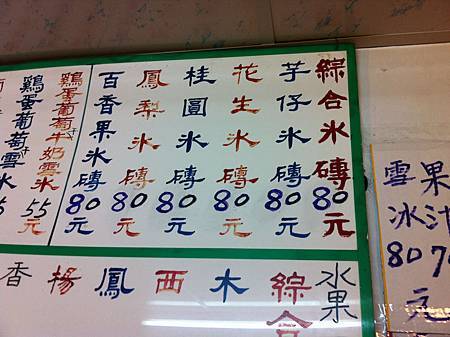 綜合氷磚80元
芋仔氷磚80元
花生氷磚80元
桂圓氷磚80元
鳳梨氷磚80元
百香果氷磚80元
鷄蛋葡萄牛奶雪氷55元
鷄蛋葡萄雪氷
水果
綜合
木
西
鳳
楊
香
果汁70
雪冰80元